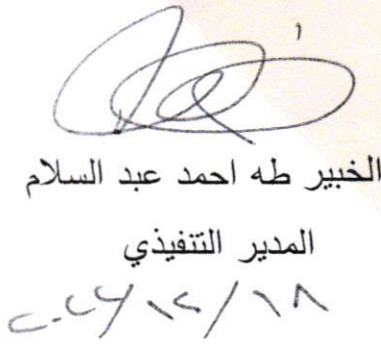 الخبير طه احمد عبد السلام
المدير التنفيذي
٢٠٢٤/١٢/١٨